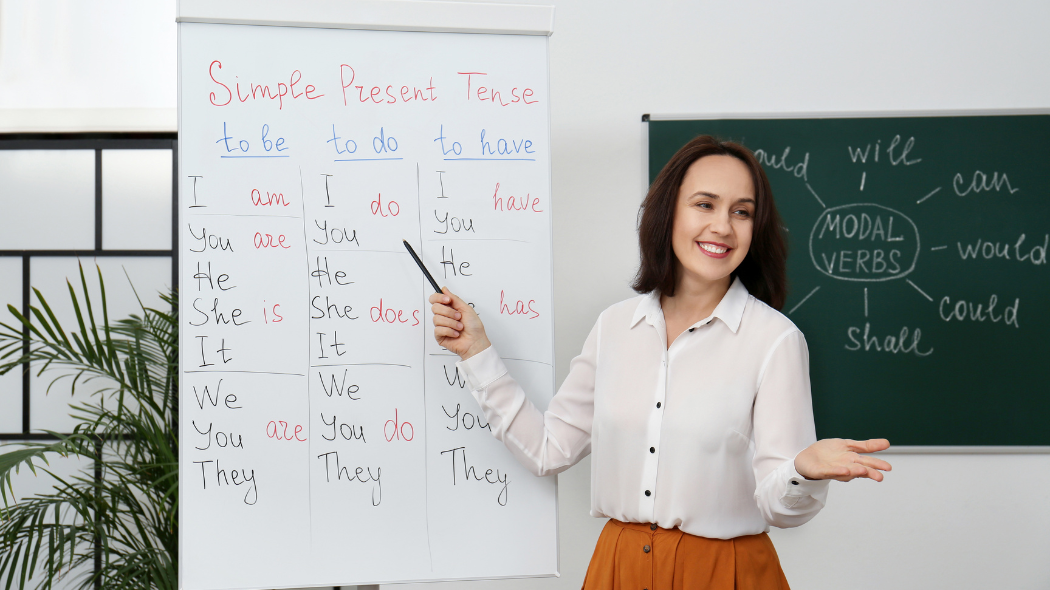 Simple Present Tense
to be to do to have
I am
You are
He
She is
It
We
You are
They
I do
You
He
She does
It
We
You do
They
I have
You
He
has
You
They
will
can
MODAL
VERBS
would
could
shall